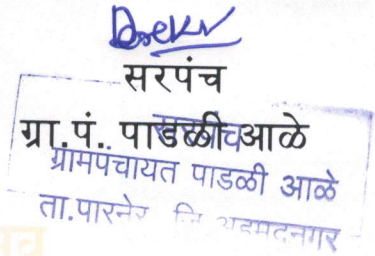 सरपंच
ग्रा.पं. पाडळीआळे
सरपंच
ग्रामपंचायत पाडळी आळे
ता.पारनेर जि अहमदनगर